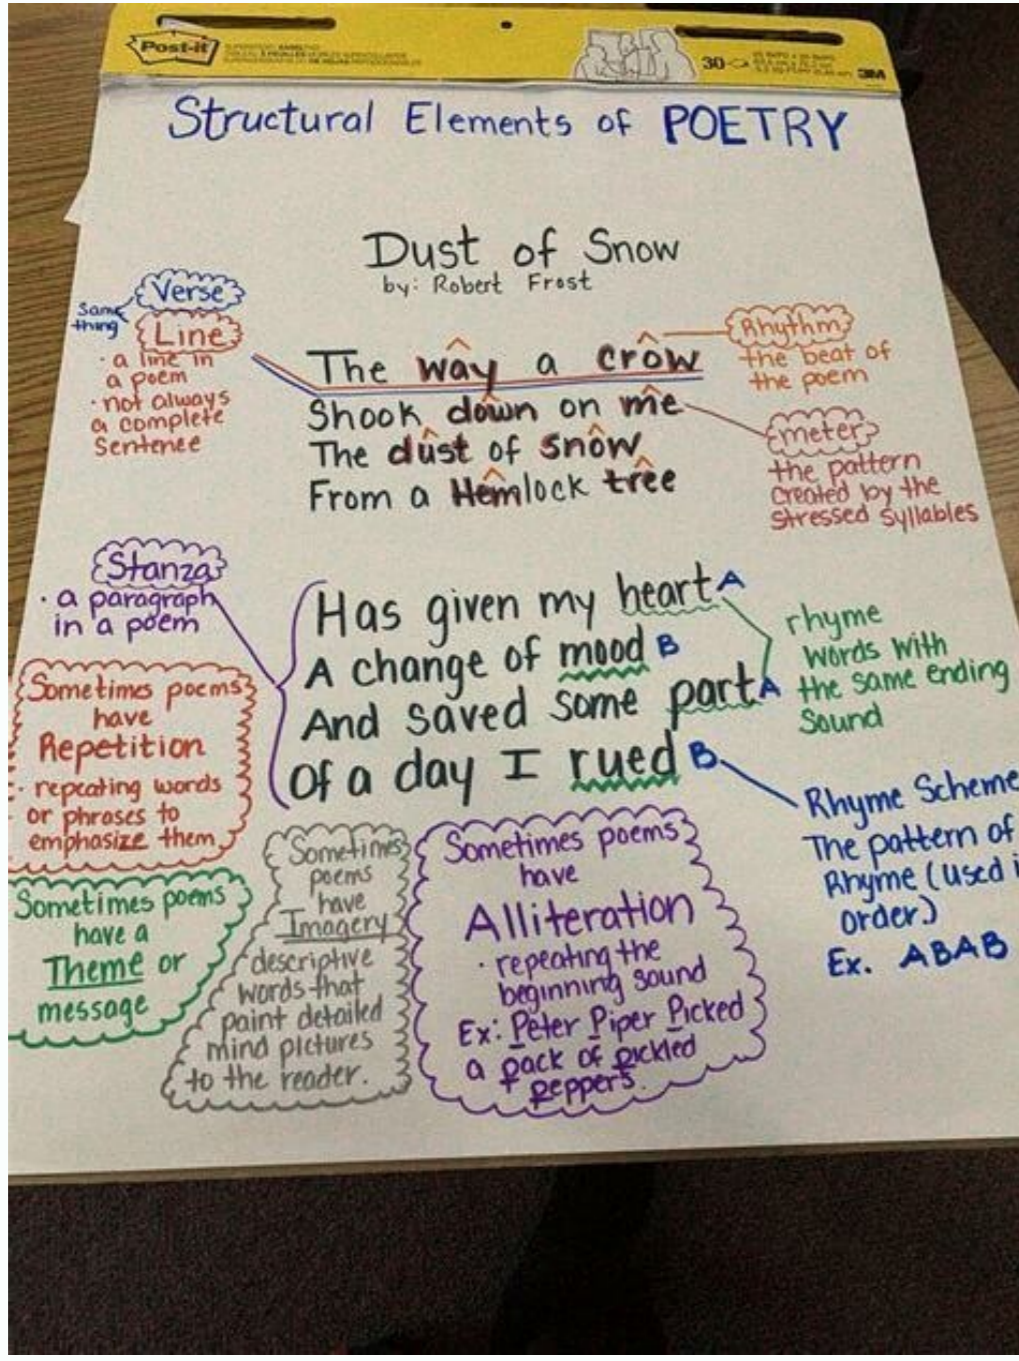 Post-it
30
3M
Structural Elements of POETRY
Dust of Snow
by: Robert Frost
Verse
Same
thing
Line
· a line in
a poem
· not always
a complete
Sentence
The way a crow
Shook down on me
The dust of snow
From a Hemlock tree
Rhythm
the beat of
the poem
meter
the pattern
created by the
stressed syllables
Stanza
· a paragraph
in a poem
Has given my heart A
A change of mood B
And saved some part A
Of a day I rued B
rhyme
words with
the same ending
Sound
Rhyme Scheme
The pattern of
Rhyme (Used
order.)
Ex. ABAB
Sometimes poems
have
Repetition
· repeating words
or phrases to
emphasize them
Sometimes poems
have a
Theme or
message
Sometimes
poems
have
Imagery
descriptive
words that
paint detailed
mind pictures
to the reader.
Sometimes poems
have
Alliteration
· repeating the
beginning sound
Ex: Peter Piper Picked
a pack of pickled
peppers.